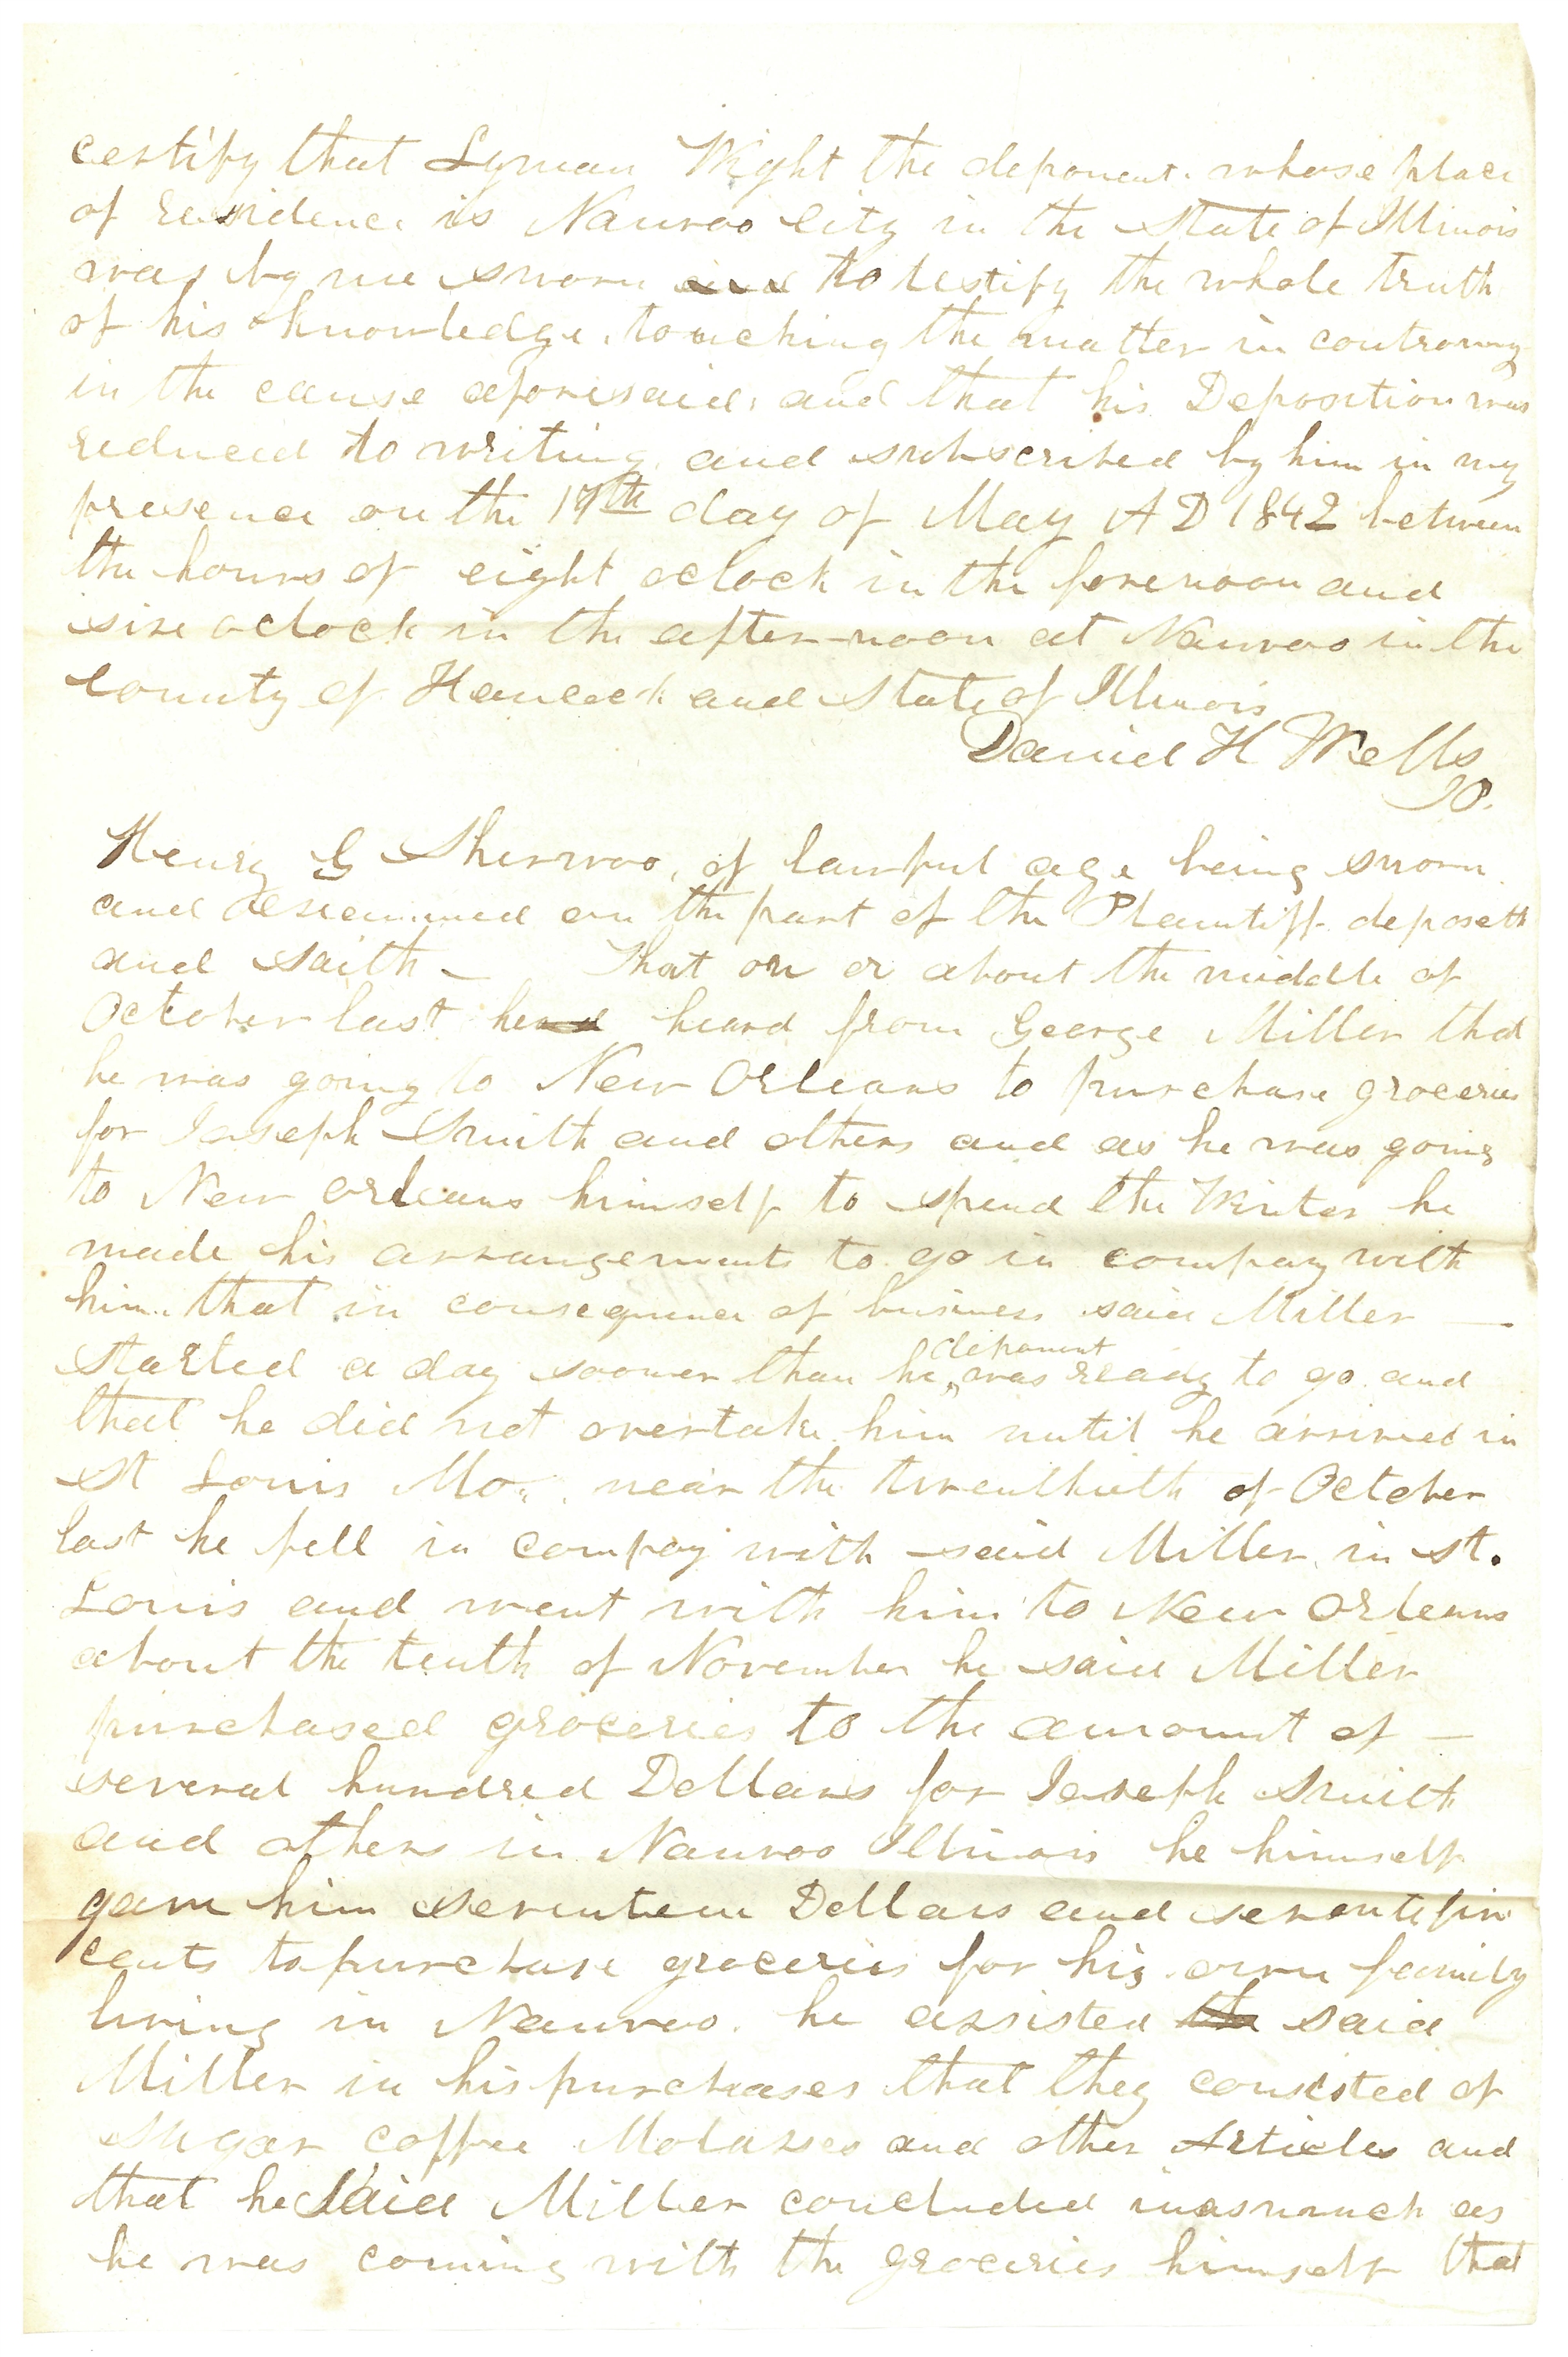 certify that Lyman Wight the deponent. whose place
of residence is Nauvoo City in the State of Illinois
was by me sworn to testify the whole truth
of his knowledge. touching the matter in controversy
in the cause aforesaid, and that his Deposition was
reduced to writing and subscribed by him in my
presence on the 17th day of May A D 1842 between
the hours of eight oclock in the forenoon and
sixe oclock in the after-noon at Nauvoo in the
County of Hancock and State of Illinois
Daniel H Wells
JP.
Henry G Sherwoo, of lawful age being sworn
and examined on the part of the Plaintiff deposeth
and saith — That on or about the middle of
October last he heard from George Miller that
he was going to New Orleans to purchase groceries
for Joseph Smith and others and as he was going
to New Orleans himself to spend the Winter he
made his arrangements to go in compay with
him. that in consequence of business said Miller —
deponent
started a day sooner than he, was ready to go and
that he did not overtake him until he arrived in
St Louis Mo. near the twenthieth of October
last he fell in compay with said Miller in st.
Louis and went with him to New Orleans
about the tenth of November he said Miller
purchased groceries to the amount of —
several hundred Dollars for Joseph Smith
and others in Nauvoo Illinois he himself
gave him seventeen Dollars and seventefive
cents to purchase groceries for his own family
living in Nauvoo. he assisted said
Miller in his purchases that they consisted of
sugar coffee Molasses and other Articles and
that he Said Miller concluded inasmuch as
he was coming with the groceries himself that